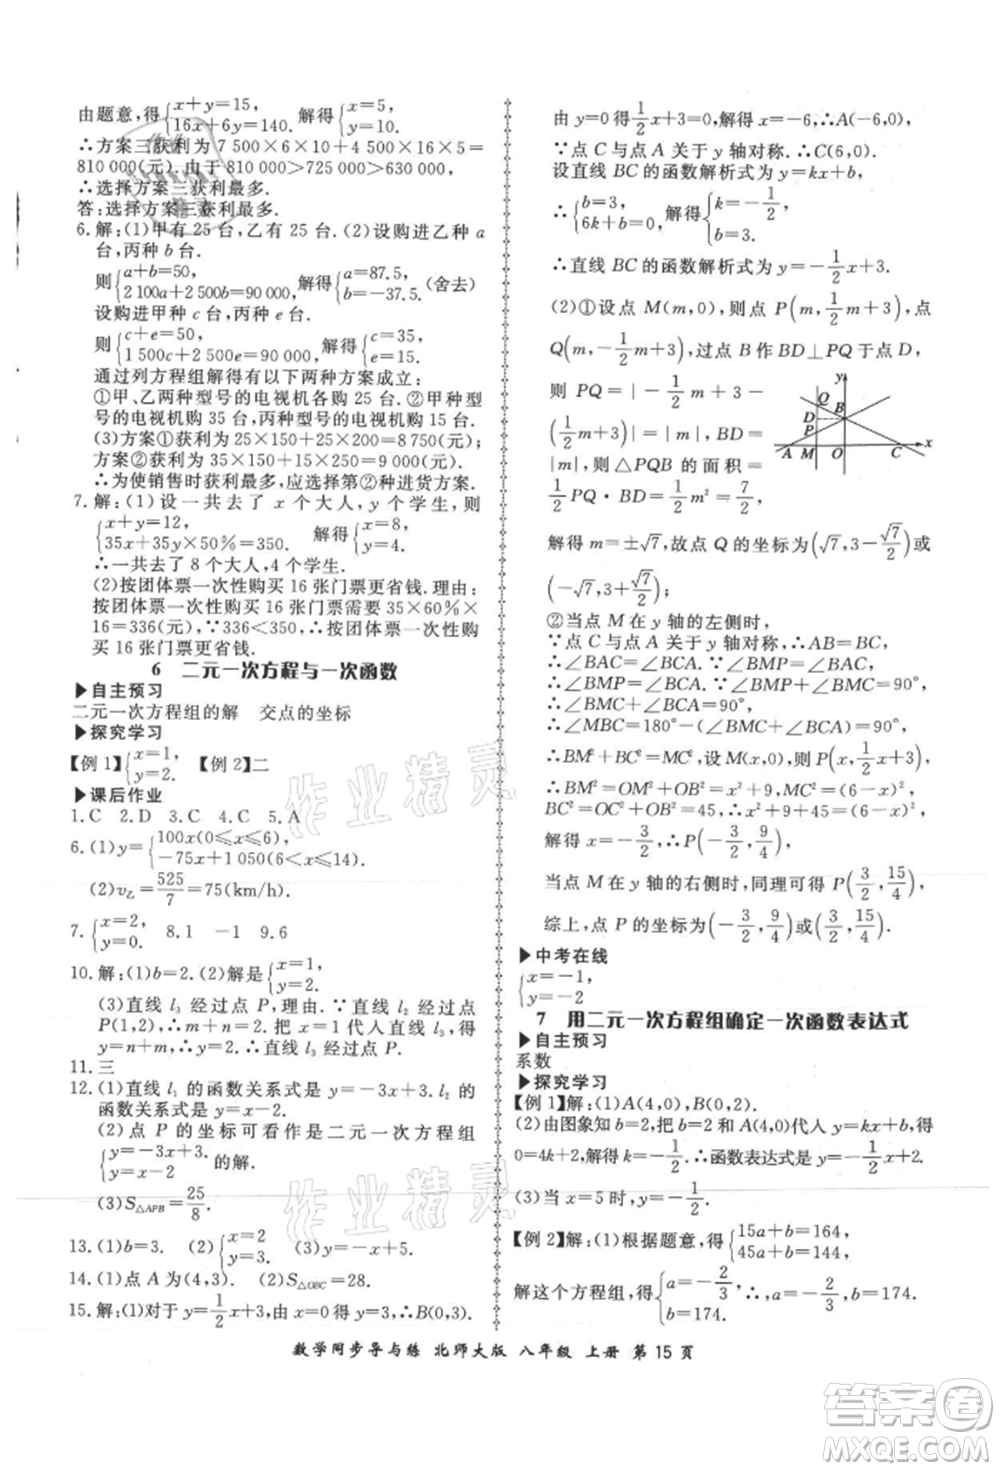 由题意,得{x+y=15, 16x+6y=140. 解得{x=5, y=10.
∴方案三获利为 7 500×6×10+4 500×16×5=
810 000(元). 由于 810 000>725 000>630 000,
∴选择方案三获利最多.
答:选择方案三获利最多.
6.解:(1)甲有 25 台,乙有 25 台. (2)设购进乙种 a
台,丙种 b 台.
则{a+b=50, 2 100a+2 500b=90 000, 解得{a=87.5, b=-37.5.(舍去)
设购进甲种 c 台,丙种 e 台.
则{c+e=50, 1 500c+2 500e=90 000, 解得{c=35, e=15.
通过列方程组解得有以下两种方案成立:
①甲、乙两种型号的电视机各购 25 台.②甲种型
号的电视机购 35 台,丙种型号的电视机购 15 台.
(3)方案①获利为 25×150+25×200=8 750(元);
方案②获利为 35×150+15×250=9 000(元).
∴为使销售时获利最多,应选择第②种进货方案.
7.解:(1)设一共去了 x 个大人,y 个学生,则
{x+y=12, 35x+35y×50%=350. 解得{x=8, y=4.
∴一共去了 8 个大人,4 个学生.
(2)按团体票一次性购买 16 张门票更省钱. 理由:
按团体票一次性购买 16 张门票需要 35×60%×
16=336(元). ∵336<350,∴按团体票一次性购
买 16 张门票更省钱.
6 二元一次方程与一次函数
▶自主预习
二元一次方程组的解 交点的坐标
▶探究学习
【例 1】{x=1, y=2. 【例 2】二
▶课后作业
1.C 2.D 3.C 4.C 5.A
6.(1)y={100x(0≤x≤6), -75x+1 050(6≤x≤14).
(2)v乙=525/7=75(km/h).
7.{x=2, y=0. 8.1 -1 9.6
10.解:(1)b=2. (2)解得{x=1, y=2.
(3)直线 l₃ 经过点 P,理由. ∵直线 l₂ 经过点
P(1,2),∴m+n=2.把 x=1 代人直线 l₃ 得
y=n+m=2,∴直线 l₃ 经过点 P.
11.三
12.(1)直线 l₁ 的函数关系式是 y=-3x+3. l₂ 的
函数关系式为 y=x-2.
(2)点 P 的坐标可看作是二元一次方程组
{y=-3x+3, y=x-2 的解.
(3)S△APB=25/8.
13.(1)b=3. (2){x=2, y=3.
14.(1)点 A 为(4,3). (2)S△OBC=28.
15.解:(1)对于 y=1/2x+3,由 x=0 得 y=3,∴B(0,3).
由 y=0 得 1/2x+3=0,解得 x=-6,∴A(-6,0).
∵点 C 与点 A 关于 y 轴对称.∴C(6,0).
设直线 BC 的函数解析式为 y=kx+b,
∴{b=3, 6k+b=0, 解得{k=-1/2, b=3.
∴直线 BC 的函数解析式为 y=-1/2x+3.
(2)①设点 M(m,0),则点 P(m,1/2m+3),点
Q(m,-1/2m+3),过点 B 作 BD⊥PQ 于点 D,
则 PQ=|-1/2m+3-
(1/2m+3)|=|m|,BD=
|m|,则△PQB 的面积=
1/2PQ·BD=1/2m²=7/2,
Q
D B
P
A M O C x
y
解得 m=±√7,故点 Q 的坐标为(√7,3-√7/2)或
(-√7,3+√7/2);
②当点 M 在 y 轴的左侧时,
∵点 C 与点 A 关于 y 轴对称,∴AB=BC,
∴∠BAC=∠BCA,∵∠BMP=∠BAC,
∴∠BMP=∠BCA,∵∠BMP+∠BMC=90°,
∴∠BMC+∠BCA=90°,
∴∠MBC=180°-(∠BMC+∠BCA)=90°,
∴BM²+BC²=MC²,设 M(x,0),则 P(x,1/2x+3),
∴BM²=OM²+OB²=x²+9,MC²=(6-x)²,
BC²=OC²+OB²=45,∴x²+9+45=(6-x)²,
解得 x=-3/2,∴P(-3/2,9/4),
当点 M 在 y 轴的右侧时,同理可得 P(3/2,15/4),
综上,点 P 的坐标为(-3/2,9/4)或(3/2,15/4).
▶中考在线
{x=-1, y=-2
7 用二元一次方程组确定一次函数表达式
▶自主预习
系数
▶探究学习
【例 1】解:(1)A(4,0),B(0,2).
(2)由图象知 b=2,把 b=2 和 A(4,0)代人 y=kx+b,得
0=4k+2,解得 k=-1/2.∴函数表达式是 y=-1/2x+2.
(3)当 x=5时,y=-1/2×5+2=-1/2.
【例 2】解:(1)根据题意,得{15a+b=164, 45a+b=144,
解这个方程组,得{a=-2/3, b=174. 即 {a=-2/3, b=174.
数学同步导与练 北师大版 八年级 上册 第 15 页
作业精灵
作业精灵
答案圈
MXQE.COM